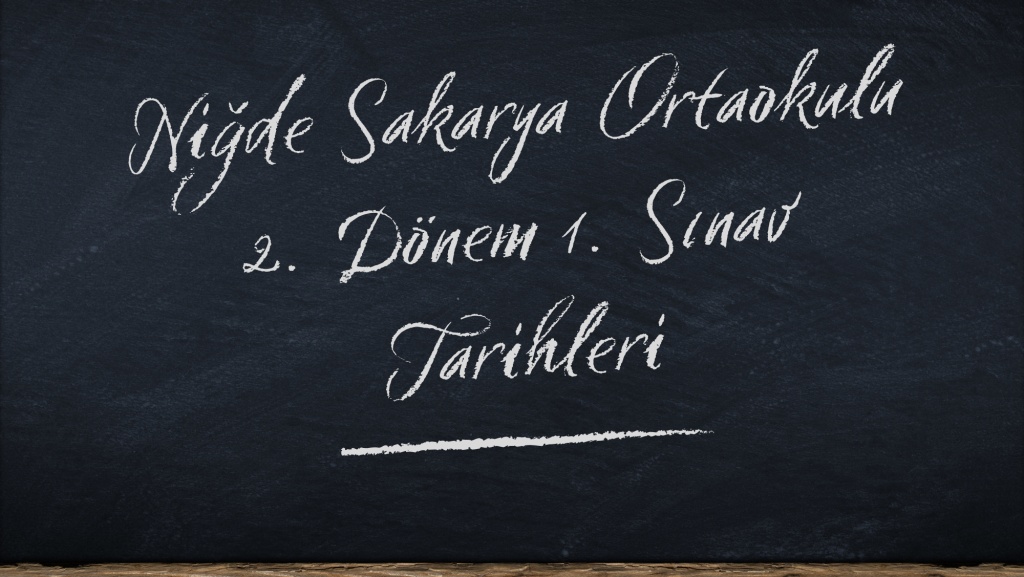 Niğde Sakarya Ortaokulu
2. Dönem 1. Sınav
Tarihleri